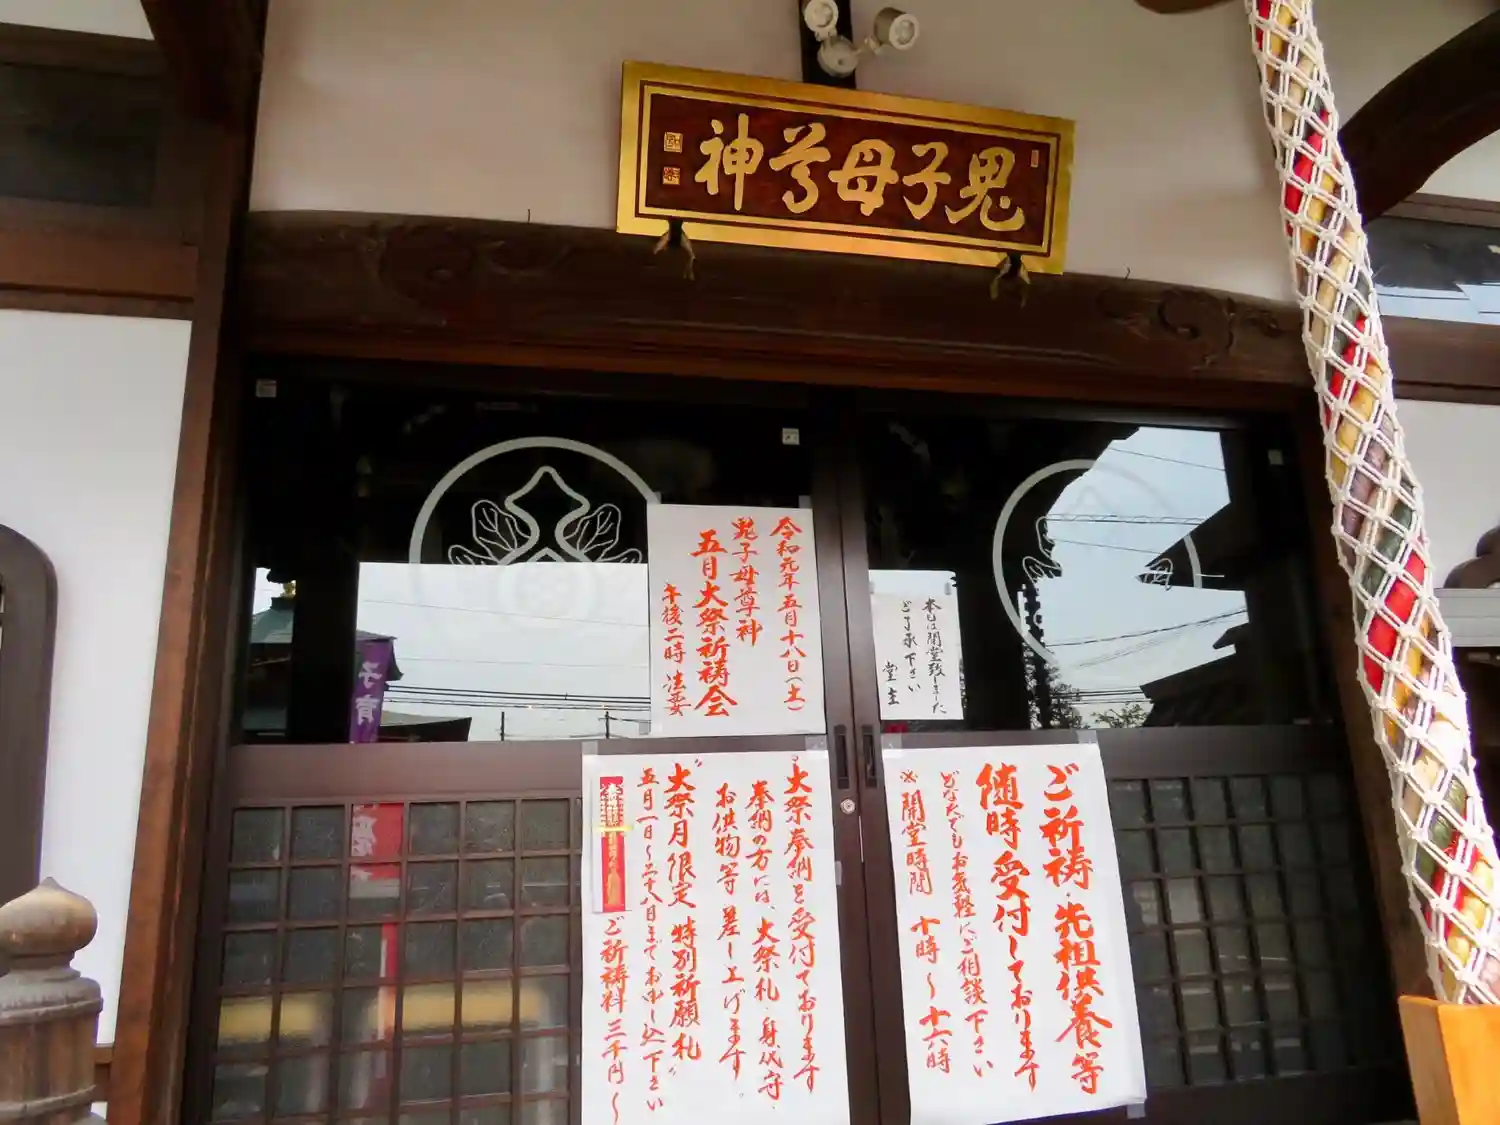 鬼子母尊神
令和元年五月十八日(土)
鬼子母尊神
五月大祭祈祷会
午後二時 法要
本日は閉堂致しました
ご了承下さい
堂主
大祭奉納を受付ております
奉納の方には、大祭札・身代守・
お供物等 差し上げます
"大祭月限定 特別祈願札"
五月一日〜二十八日までお申し込下さい
ご祈祷料 三千円〜
ご祈祷・先祖供養等
随時受付しております
どなたでもお気軽にご相談下さい
※ 開堂時間 十時〜十六時
子育